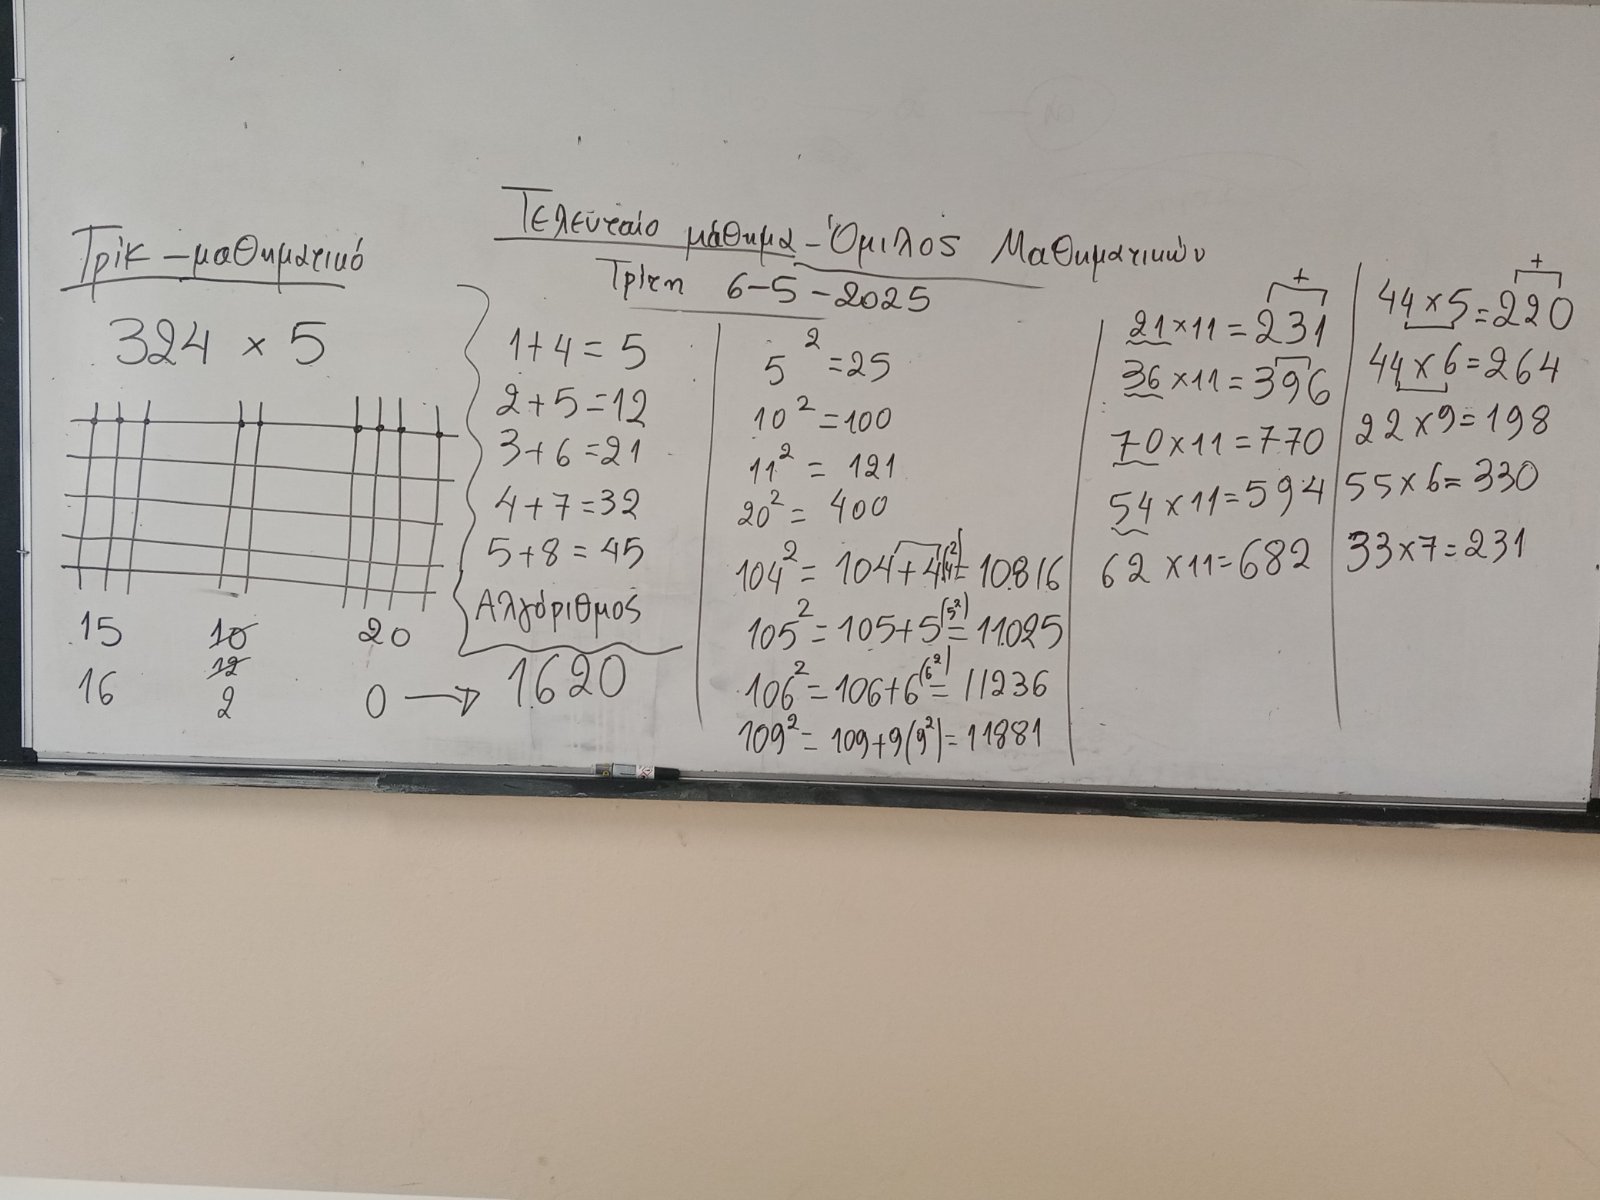 Τελευταίο μάθημα - Όμιλος Μαθηματικών
Τρίτη 6-5-2025
Τρίκ - μαθηματικό
324 × 5
15 10 20
16 12
2 0 → 1620
1+4 = 5
2+5 = 12
3+6 = 21
4+7 = 32
5+8 = 45
Αλγόριθμος
5² = 25
10² = 100
11² = 121
20² = 400
104² = 104+4(4²) = 10816
105² = 105+5(5²) = 11025
106² = 106+6(6²) = 11236
109² = 109+9(9²) = 11881
+
21 × 11 = 231
36 × 11 = 396
70 × 11 = 770
54 × 11 = 594
62 × 11 = 682
+
44 × 5 = 220
44 × 6 = 264
22 × 9 = 198
55 × 6 = 330
33 × 7 = 231